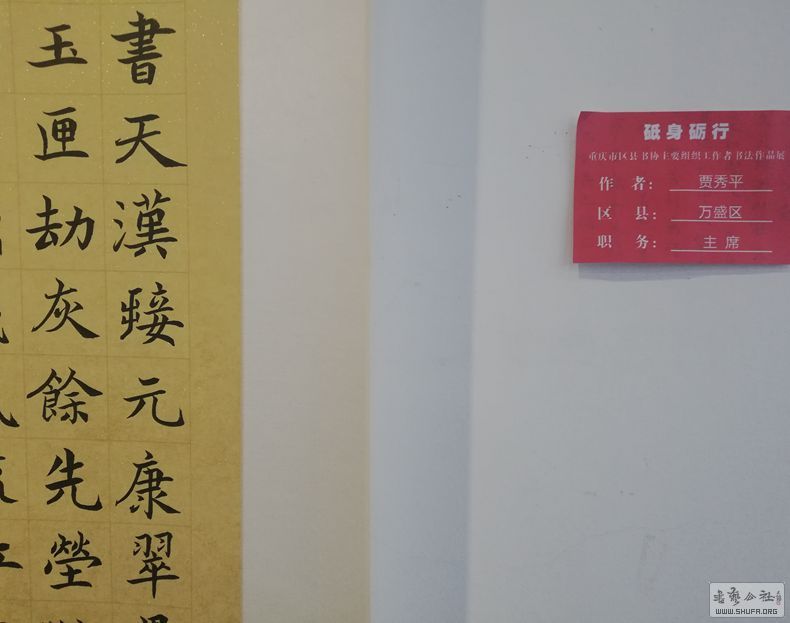 書天漢元康翠
玉匣劫灰餘先塋
砥身砺行
重庆市区县书协主要组织工作者书法作品展
作 者：贾秀平
区 县：万盛区
职 务：主席
書藝公社
WWW.SHUFA.ORG